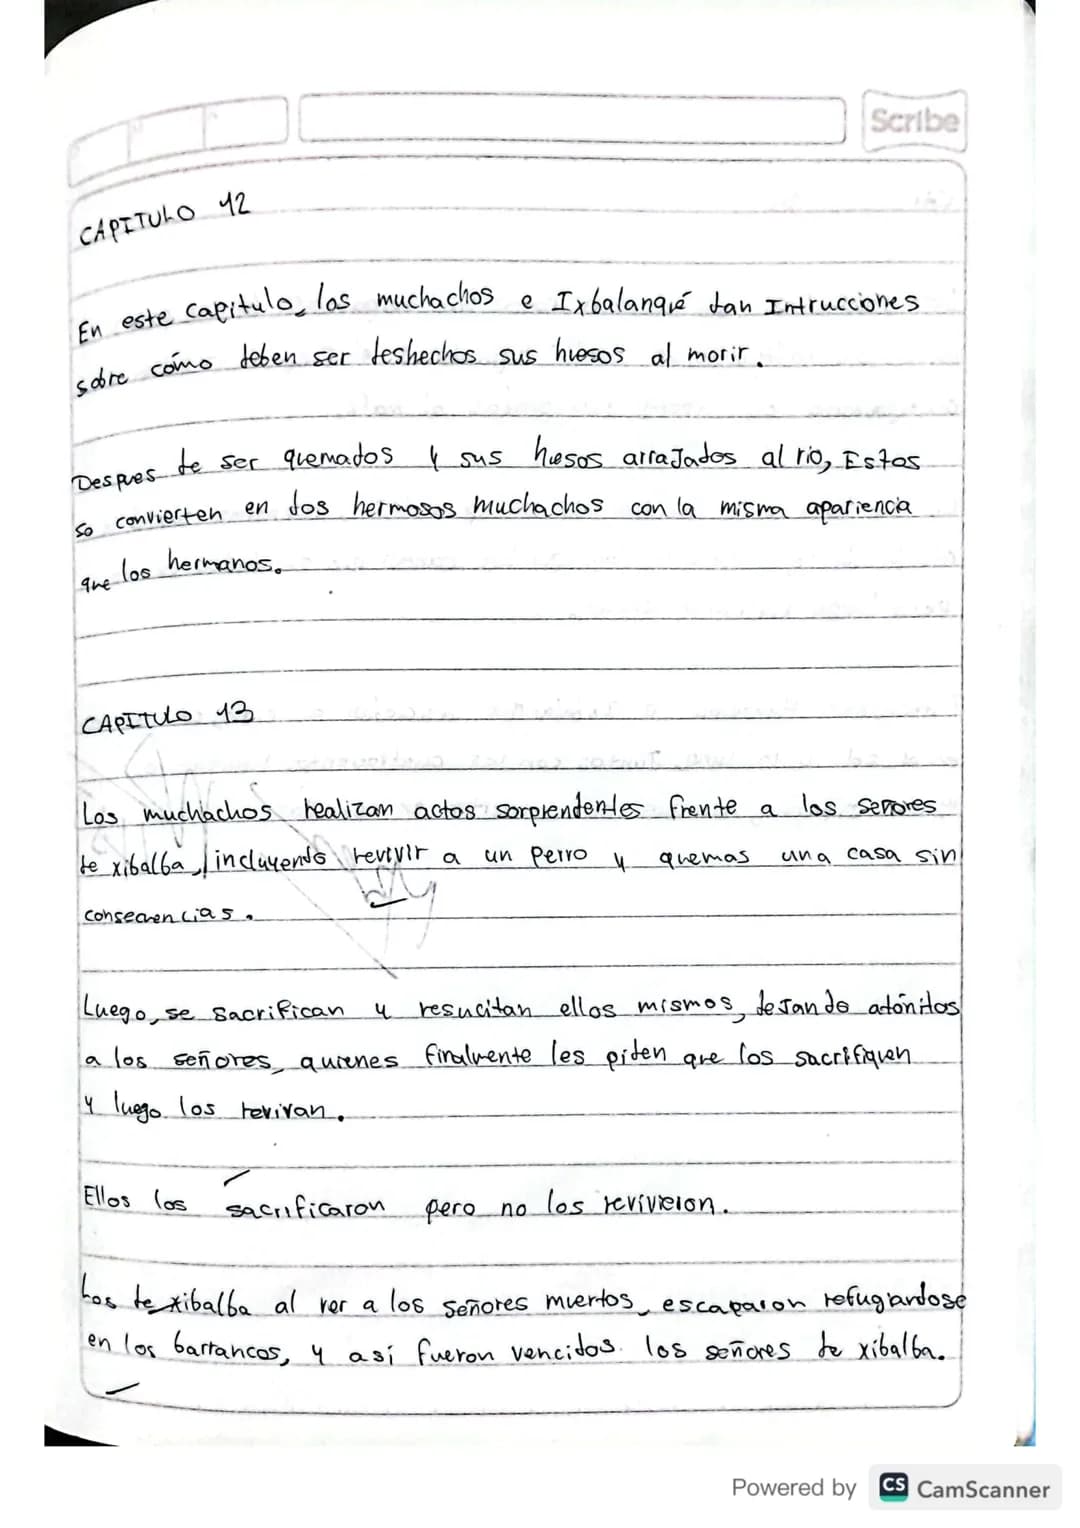 Scribe
CAPITULO 12
En este capitulo, los muchachos e Ixbalanqué dan Intrucciones
sobre cómo deben ser deshechos sus huesos al morir.
Despues de ser quemados y sus huesos arraJados al rio, Estos
so convierten en dos hermosos muchachos con la misma apariencia
que los hermanos.
CAPITULO 13
Los muchachos realizan actos sorprendentes frente a los señores
de xibalba, incluyendo revivir a un perro y quemas una casa sin
consecuencias.
Luego, se sacrifican y resucitan ellos mismos, deJando atónitos
a los señores, quienes finalmente les piden que los sacrifiquen
y luego los revivan.
Ellos los sacrificaron pero no los revivieron.
Los de xibalba al ver a los señores muertos, escaparon refugiandose
en los barrancos, y así fueron vencidos los señores de xibalba.
Powered by CS CamScanner